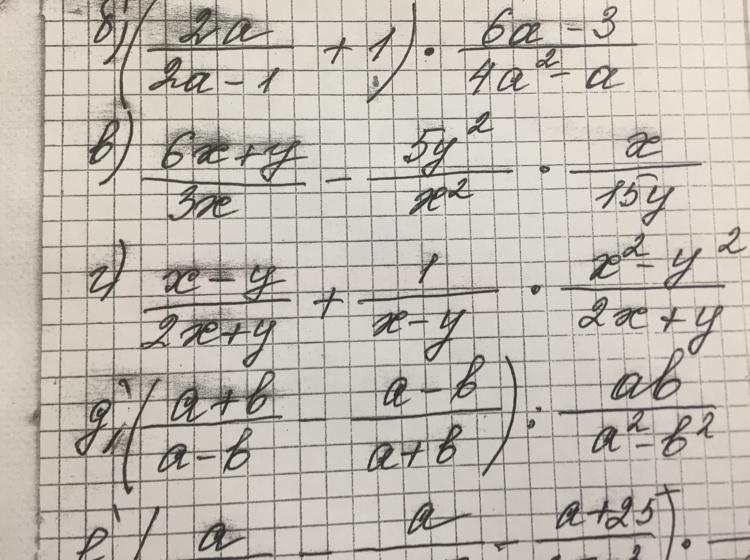 б) (2a/(2a-1) + 1) · (6a-3)/(4a²-a)
в) (6x+y)/(3x) - 5y²/x² · x/(15y)
г) (x-y)/(2x+y) + 1/(x-y) · (x²-y²)/(2x+y)
д) ((a+b)/(a-b) - (a-b)/(a+b)) : ab/(a²-b²)
( a - a - a+25 )